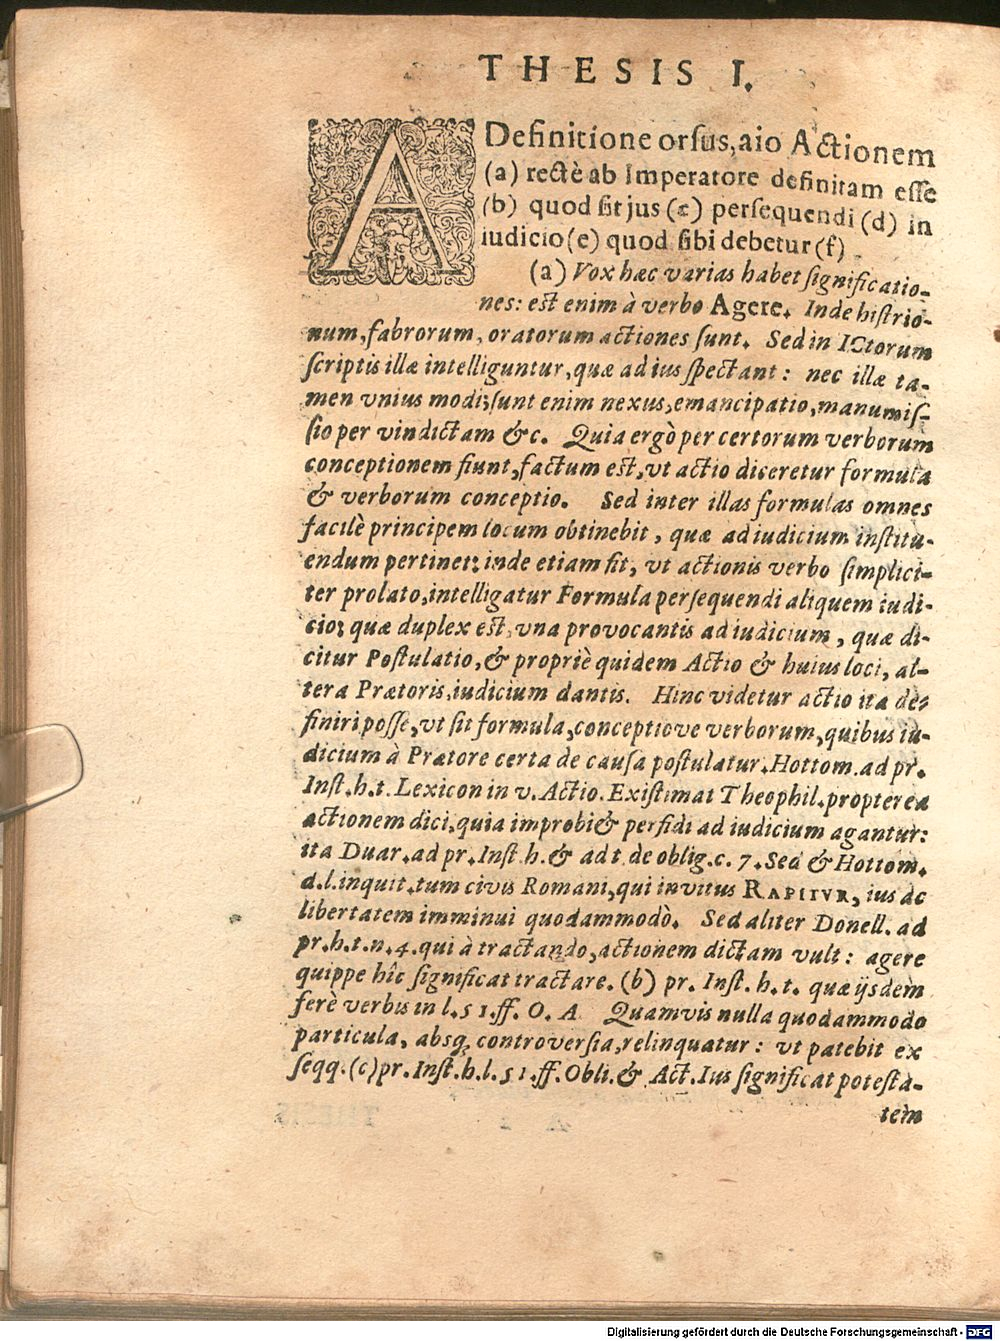 THESIS I.
A Definitione orsus, aio Actionem
(a) rectè ab Imperatore definitam esse
(b) quod sit jus (c) persequendi (d) in
iudicio (e) quod sibi debetur (f)
(a) Vox hæc varias habet significatio-
nes: est enim à verbo Agere. Inde histrio-
num, fabrorum, oratorum actiones sunt. Sed in ICtorum
scriptis illæ intelliguntur, quæ ad ius spectant: nec illæ ta-
men vnius modi; sunt enim nexus, emancipatio, manumis-
sio per vindictam &c. Quia ergò per certorum verborum
conceptionem fiunt, factum est, vt actio diceretur formula
& verborum conceptio. Sed inter illas formulas omnes
facilè principem locum obtinebit, quæ ad iudicium institu-
endum pertinet: inde etiam fit, vt actionis verbo simplici-
ter prolato, intelligatur Formula persequendi aliquem iudi-
cio: quæ duplex est, vna provocantis ad iudicium, quæ di-
citur Postulatio, & propriè quidem Actio & huius loci, al-
tera Prætoris iudicium dantis. Hinc videtur actio ita de-
finiri posse, vt sit formula, conceptiove verborum, quibus iu-
dicium à Prætore certa de causa postulatur. Hottom. ad pr.
Inst. h. t. Lexicon in v. Actio. Existimat Theophil. propterea
actionem dici, quia improbi & perfidi ad iudicium agantur:
ita Duar. ad pr. Inst. h. & ad t. de oblig. c. 7. Sed & Hottom.
d. l. inquit, tum civis Romani, qui invitus RAPITVR, ius ac
libertatem imminui quodammodò. Sed aliter Donell. ad
pr. h. t. n. 4. qui à tractando, actionem dictam vult: agere
quippe hîc significat tractare. (b) pr. Inst. h. t. quæ ijsdem
ferè verbis in l. 51. ff. O. A Quamvis nulla quodammodo
particula, absq; controversia, relinquatur: vt patebit ex
seqq. (c) pr. Inst. h. l. 51. ff. Obli. & Act. Ius significat potesta-
tem
Digitalisierung gefördert durch die Deutsche Forschungsgemeinschaft - DFG